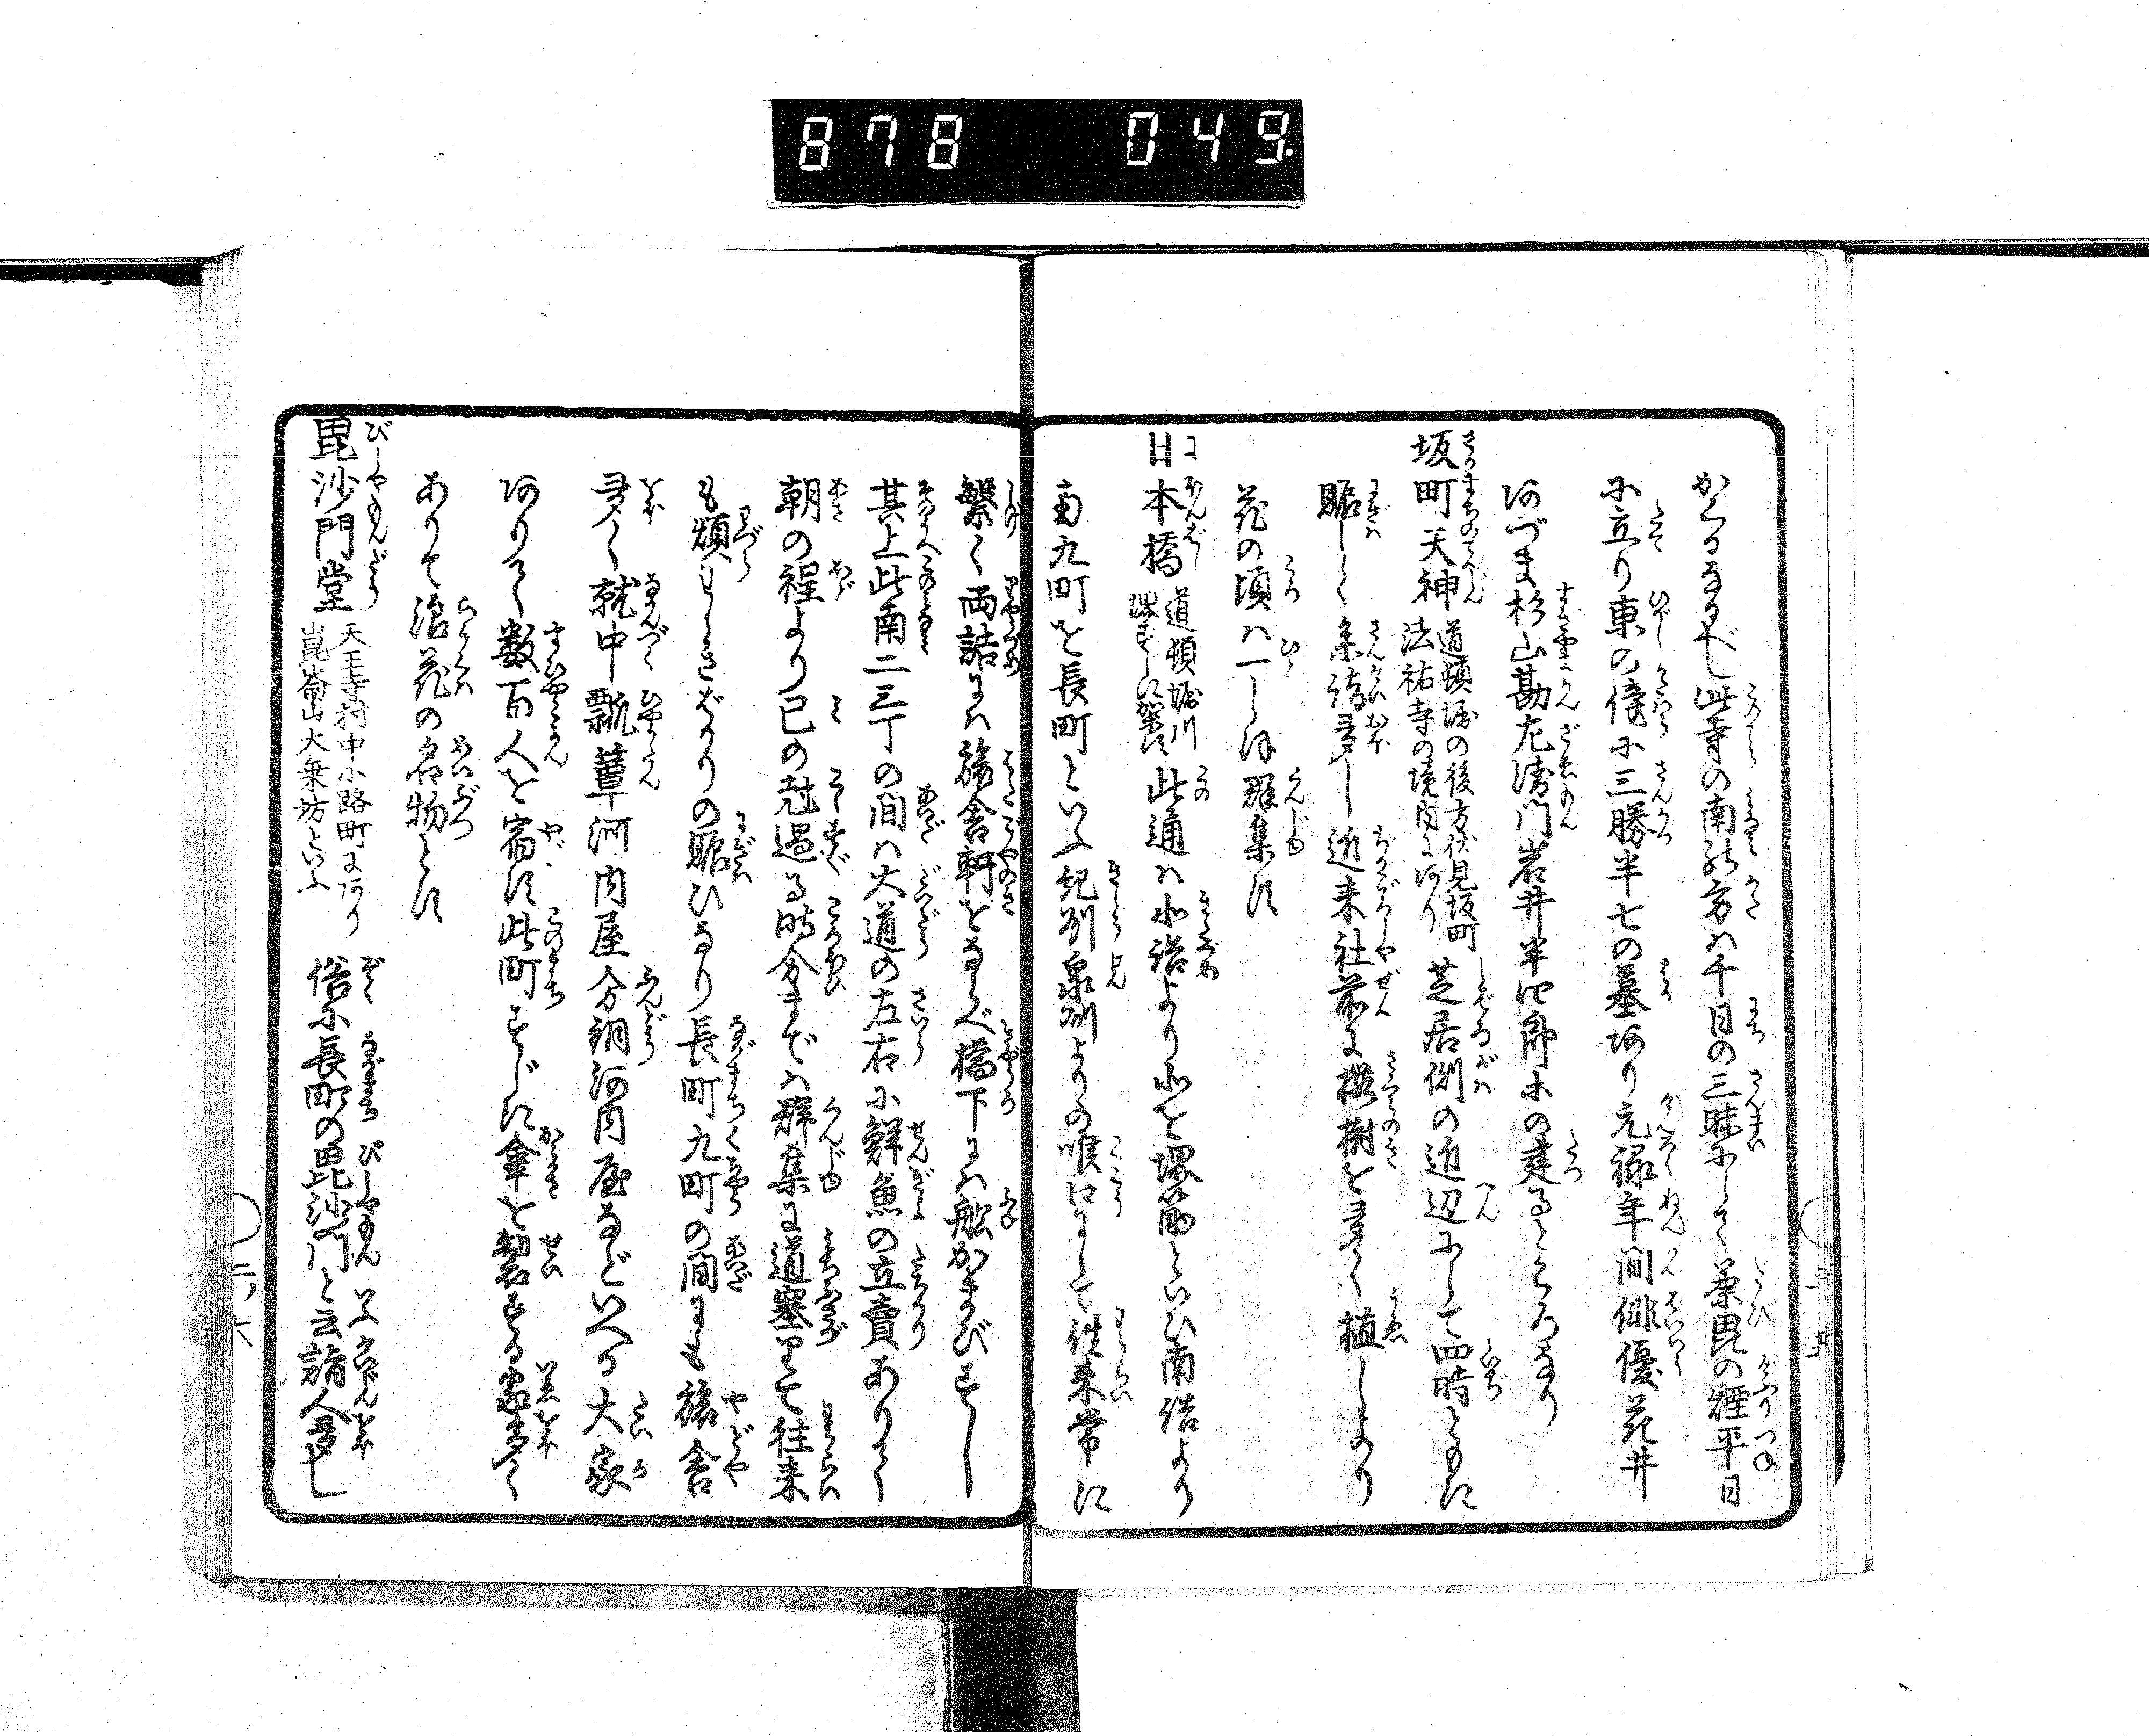 878 049
かくるなるべし此寺の南の方ハ千日の三昧にして荼毘の煙平日
に立り東の傍に三勝半七の墓あり元禄年間俳優花井
あづま杉山勘左衛門岩井半四郎等の建るところなり
坂町天神
道頓堀の後方伏見坂町
法祐寺の境内にあり
芝居側の近辺にして四時ともに
賑しく参詣多し近来社前に桜樹を多く植しより
花の頃ハ一しほ群集す
日本橋
道頓堀川
堺すじに架す
此通ハ北詰より北を堺筋といひ南詰より
南九町を長町といふ紀州泉州よりの喉口にして往来常に
繁く両詰にハ旅舎軒をならべ橋下にハ船かまびすし
其上此南二三丁の間ハ大道の左右に鮮魚の立賣ありて
朝の程より巳の尅過る時分までハ群集に道塞りて往来
も煩わしきばかりの賑ひなり長町九町の間にも旅舎
多く就中瓢箪河内屋分銅河内屋などいへる大家
ありて数百人を宿す此町すじに傘を製する家多く
ありて浪花の名物とす
毘沙門堂
天王寺村中小路町にあり
崑崙山大乗坊といふ
俗に長町の毘沙門と云詣人多し
六